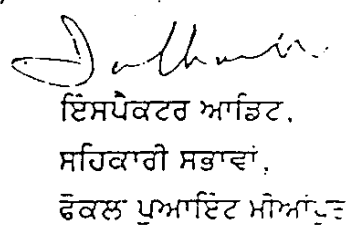 ਇੰਸਪੈਕਟਰ ਆਡਿਟ,
ਸਹਿਕਾਰੀ ਸਭਾਵਾਂ,
ਫੋਕਲ ਪੁਆਇੰਟ